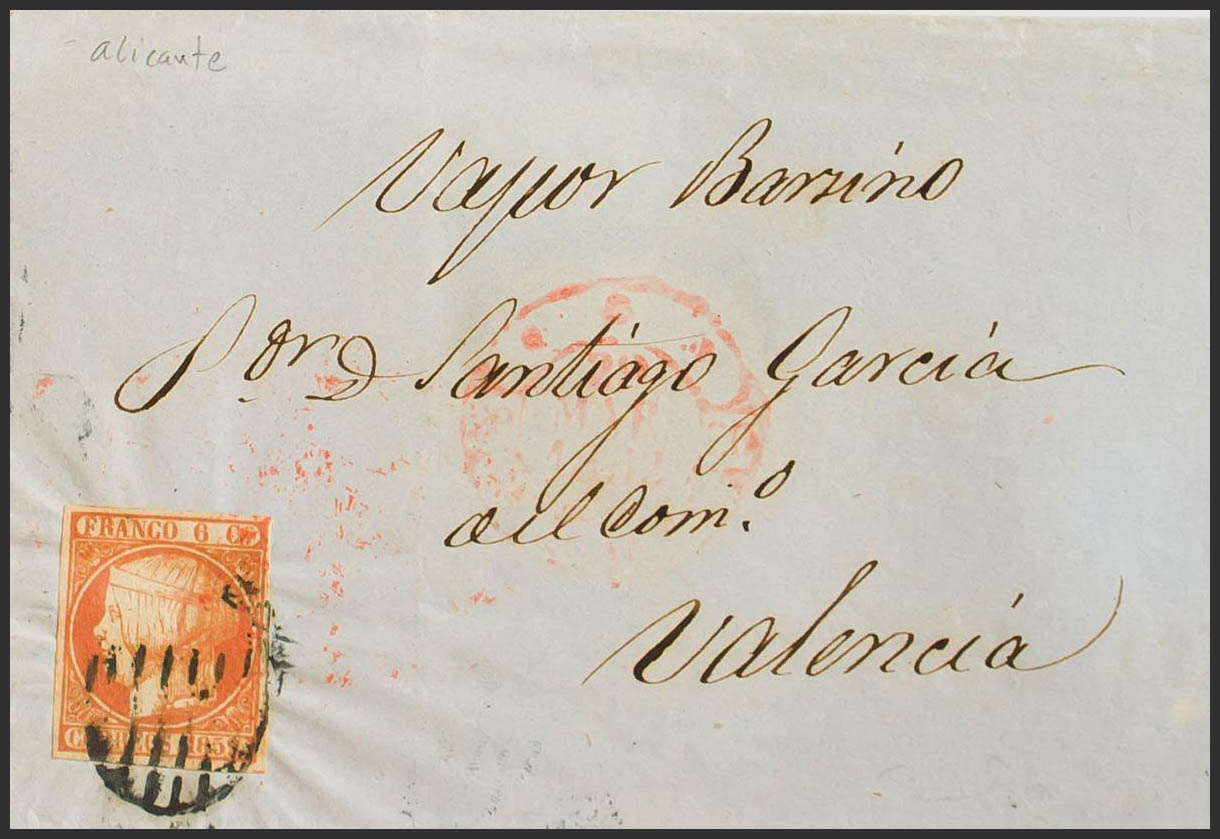 alicante
Vapor Barsino
Sor. D Santiago Garcia
del Comº.
Valencia
FRANCO 6 Cs
CORREOS 1852